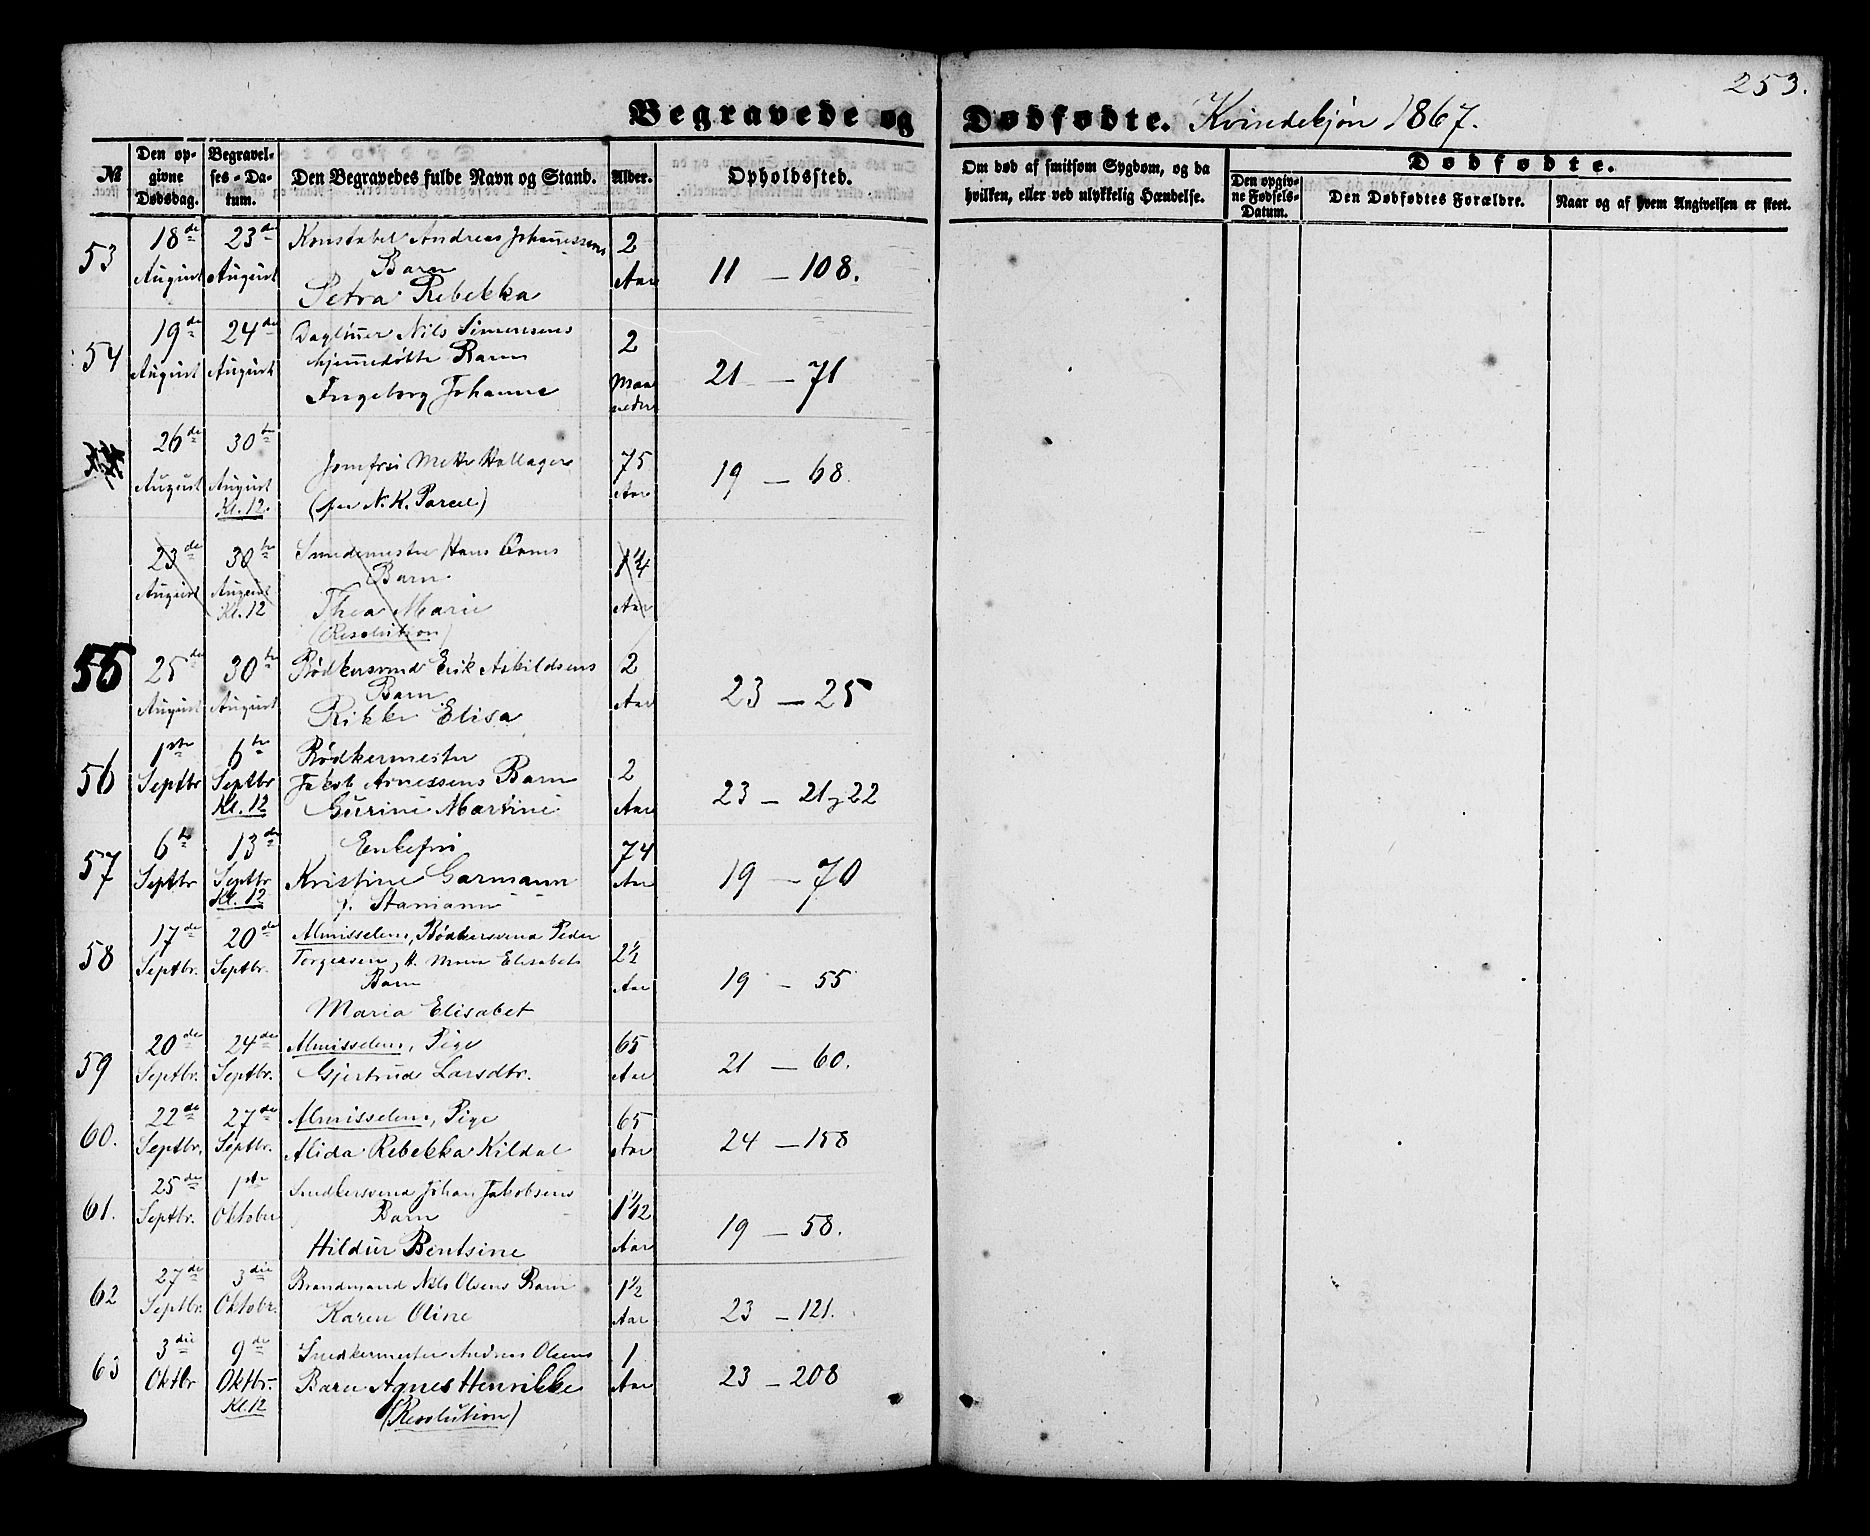 253.
Begravede og Dødfødte. Kvindekjøn 1867.
№ Den opgivne Dødsdag. Begravelses-Datum. Den Begravedes fulde Navn og Stand. Alder. Opholdssted. Om død af smitsom Sygdom, og da hvilken, eller ved ulykkelig Hændelse. Dødfødte.
Den opgivne Fødsels-Datum. Den Dødfødtes Forældre. Naar og af hvem Angivelsen er skeet.
53 18de August 23de August Konstabel Andreas Johannessens 2 Aar 11 – 108.
Barn
Petra Rebekka
54 19de August 24de August Dagløner Nils Simensens 2 Maaneder 21 – 71
hjemmedøbte Barn
Ingeborg Johanne
26de August 30te August Kl. 12. Jomfru Mette Hallager 75 Aar 19 – 68.
(paa N.K. Parcel)
23de August 30te August Kl. 12 Smedemester Hans 1 1/4 Aar
Barn
Thea Marie
(Resolution)
55 25de August 30te August Bødkersvend Erik Askildsens 2 Aar 23 – 25
Barn
Rikke Elisa
56 1ste Septbr 6te Septbr Kl. 12 Bødkermester 2 Aar 23 – 21, 22
Jakob Arnessens Barn
Gurine Martine
57 6te Septbr 13de Septbr Kl. 12 Enkefru 74 Aar 19 – 70
Kristine Garmann
f. Stamann
58 17de Septbr. 20de Septbr. Almisselem, Bødkersvend Peder 2 1/2 Aar 19 – 55
Torgersen, H. Maria Elisabets
Barn
Maria Elisabet
59 20de Septbr. 24de Septbr. Almisselem, Pige 65 Aar 21 – 60.
Gjertrude Larsdtr.
60. 22de Septbr. 27de Septbr. Almisselem, Pige 65 Aar 24 – 158
Alida Rebekka Kildal
61. 25de Septbr. 1ste Oktober Snedkersvend Johan Jakobsens 1 1/12 Aar 19 – 58.
Barn
Hildur Bentsine
62 27de Septbr. 3die Oktobr. Brandmand Nils Olsens Barn 1 1/2 Aar 23 – 121.
Karen Oline
63 3die Oktbr 9de Oktbr. Kl. 12 Snedkermester Andreas Olsens 1 Aar 23 – 208
Barn Agnes Henrikke
(Resolution)